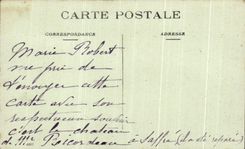 CARTE POSTALE
CORRESPONDANCE
ADRESSE
Marie Robert
me prie de
t'envoyer cette
carte avec son
respectueux souvenir
c'est le chateau
de Mr à Saffré